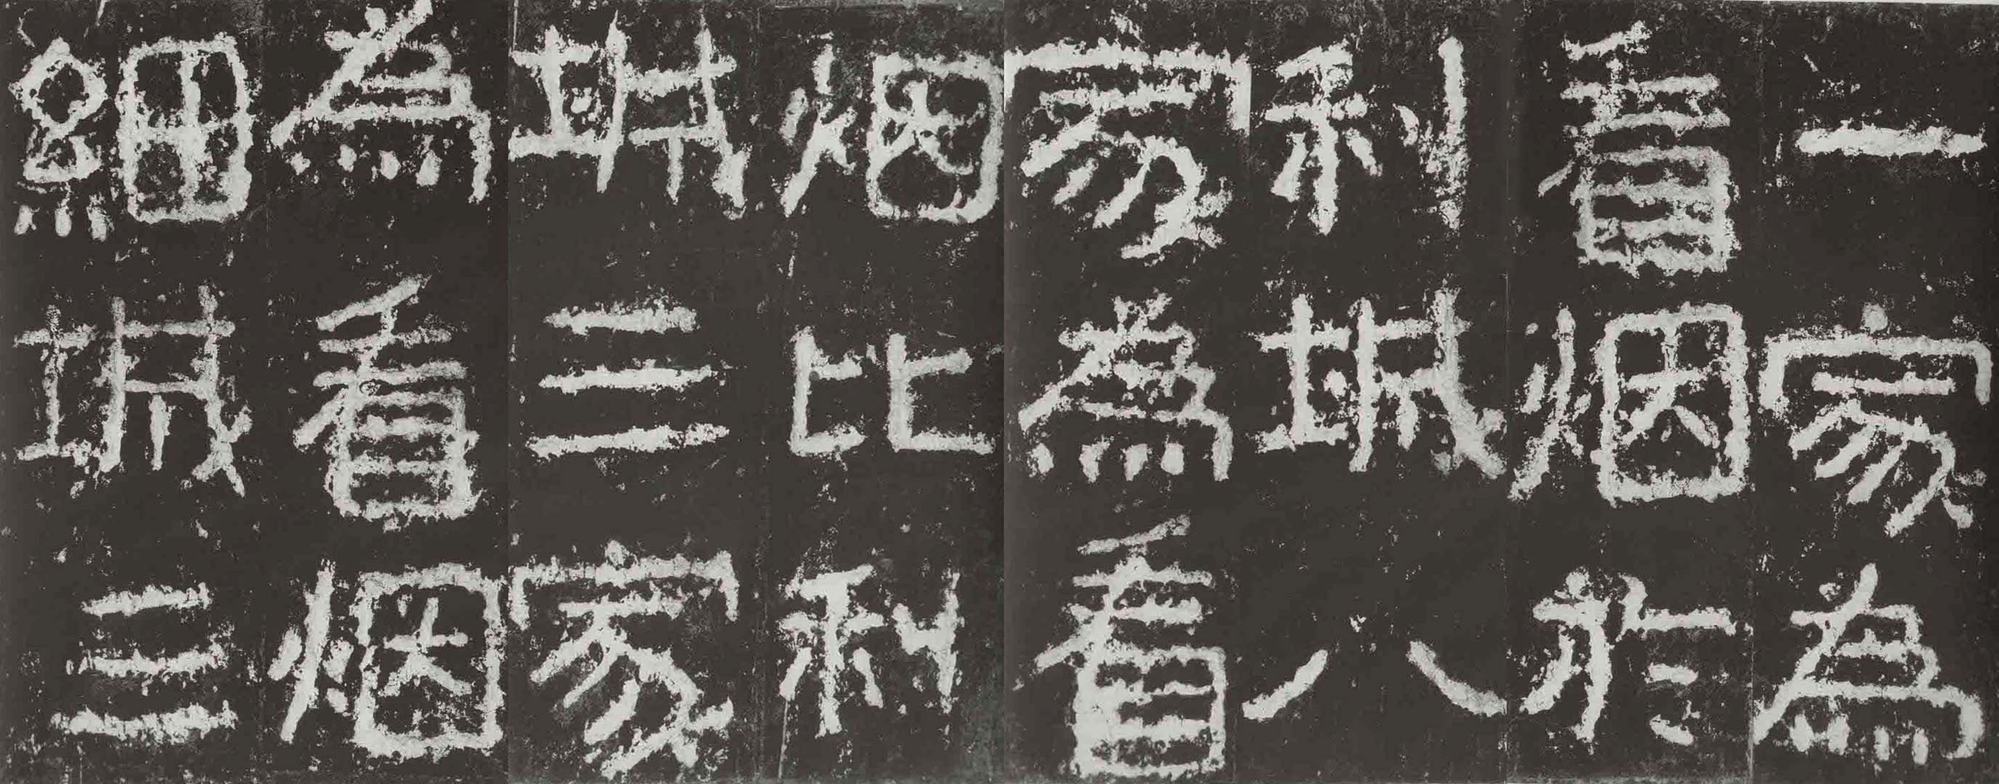 一家為
看烟於
利城八
家為看
烟比利
城三家
為看烟
細城三